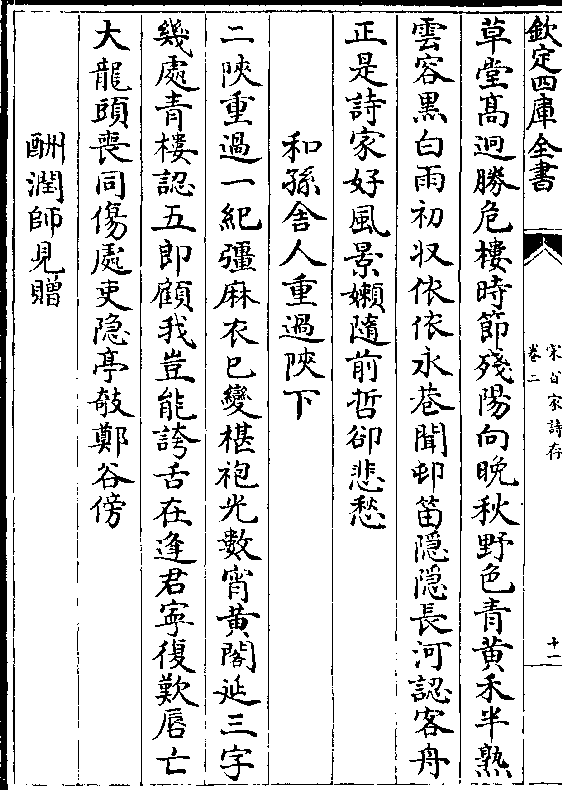 欽定四庫全書
宋百家詩存
卷二
十一
草堂髙迥勝危樓時節殘陽向晩秋野色青黄禾半熟
雲容黒白雨初収依依永巷聞邨笛隠隠長河認客舟
正是詩家好風景嬾隨前哲卻悲愁
和孫舎人重過陜下
二陜重過一紀彊麻衣已變椹袍光數宵黄閣延三字
幾處青樓認五郎顧我豈能誇舌在逢君寧復歎唇亡
大龍頭喪同傷處吏隠亭敧鄭谷傍
酬潤師見贈